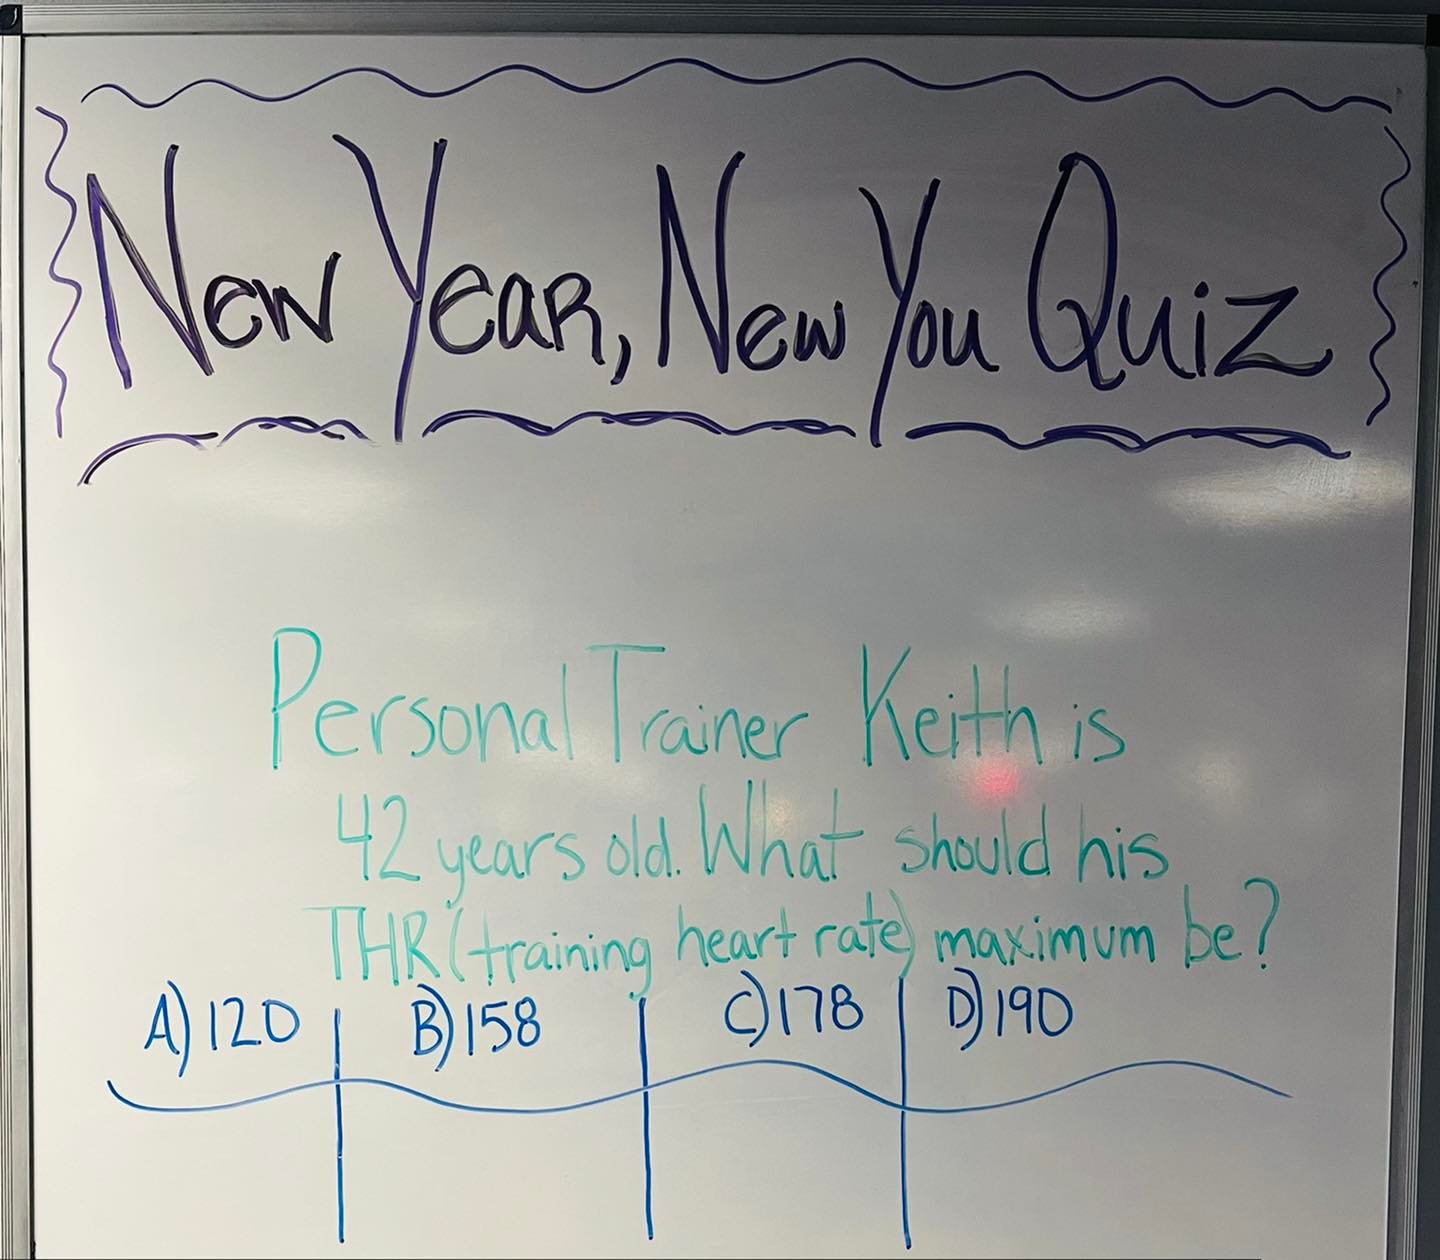 New Year, New You Quiz
Personal Trainer Keith is
42 years old. What should his
THR (training heart rate) maximum be?
A) 120 B) 158 C) 178 D) 190